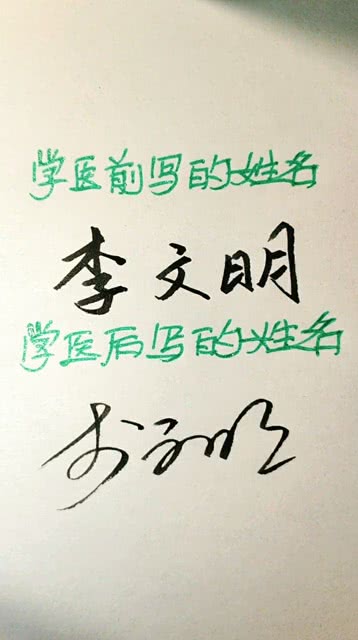 学医前写的姓名
李文明
学医后写的姓名
李文明